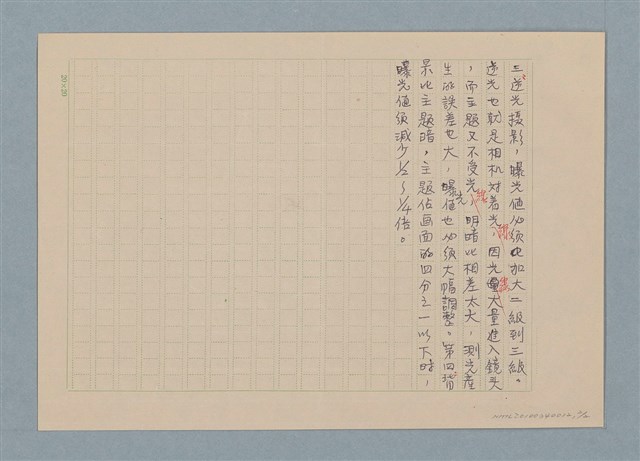 三逆光摄影，曝光值必须加大二級到三級。
逆光也就是相机对着光，因光大量進入鏡头
，而主題又不受光，明暗比相差太大，測光產
生的誤差也大，曝光值也必须大幅調整。第四
景比主題暗，主題佔画面的四分之一以下時，
曝光值须減少½～¼倍。
20×20